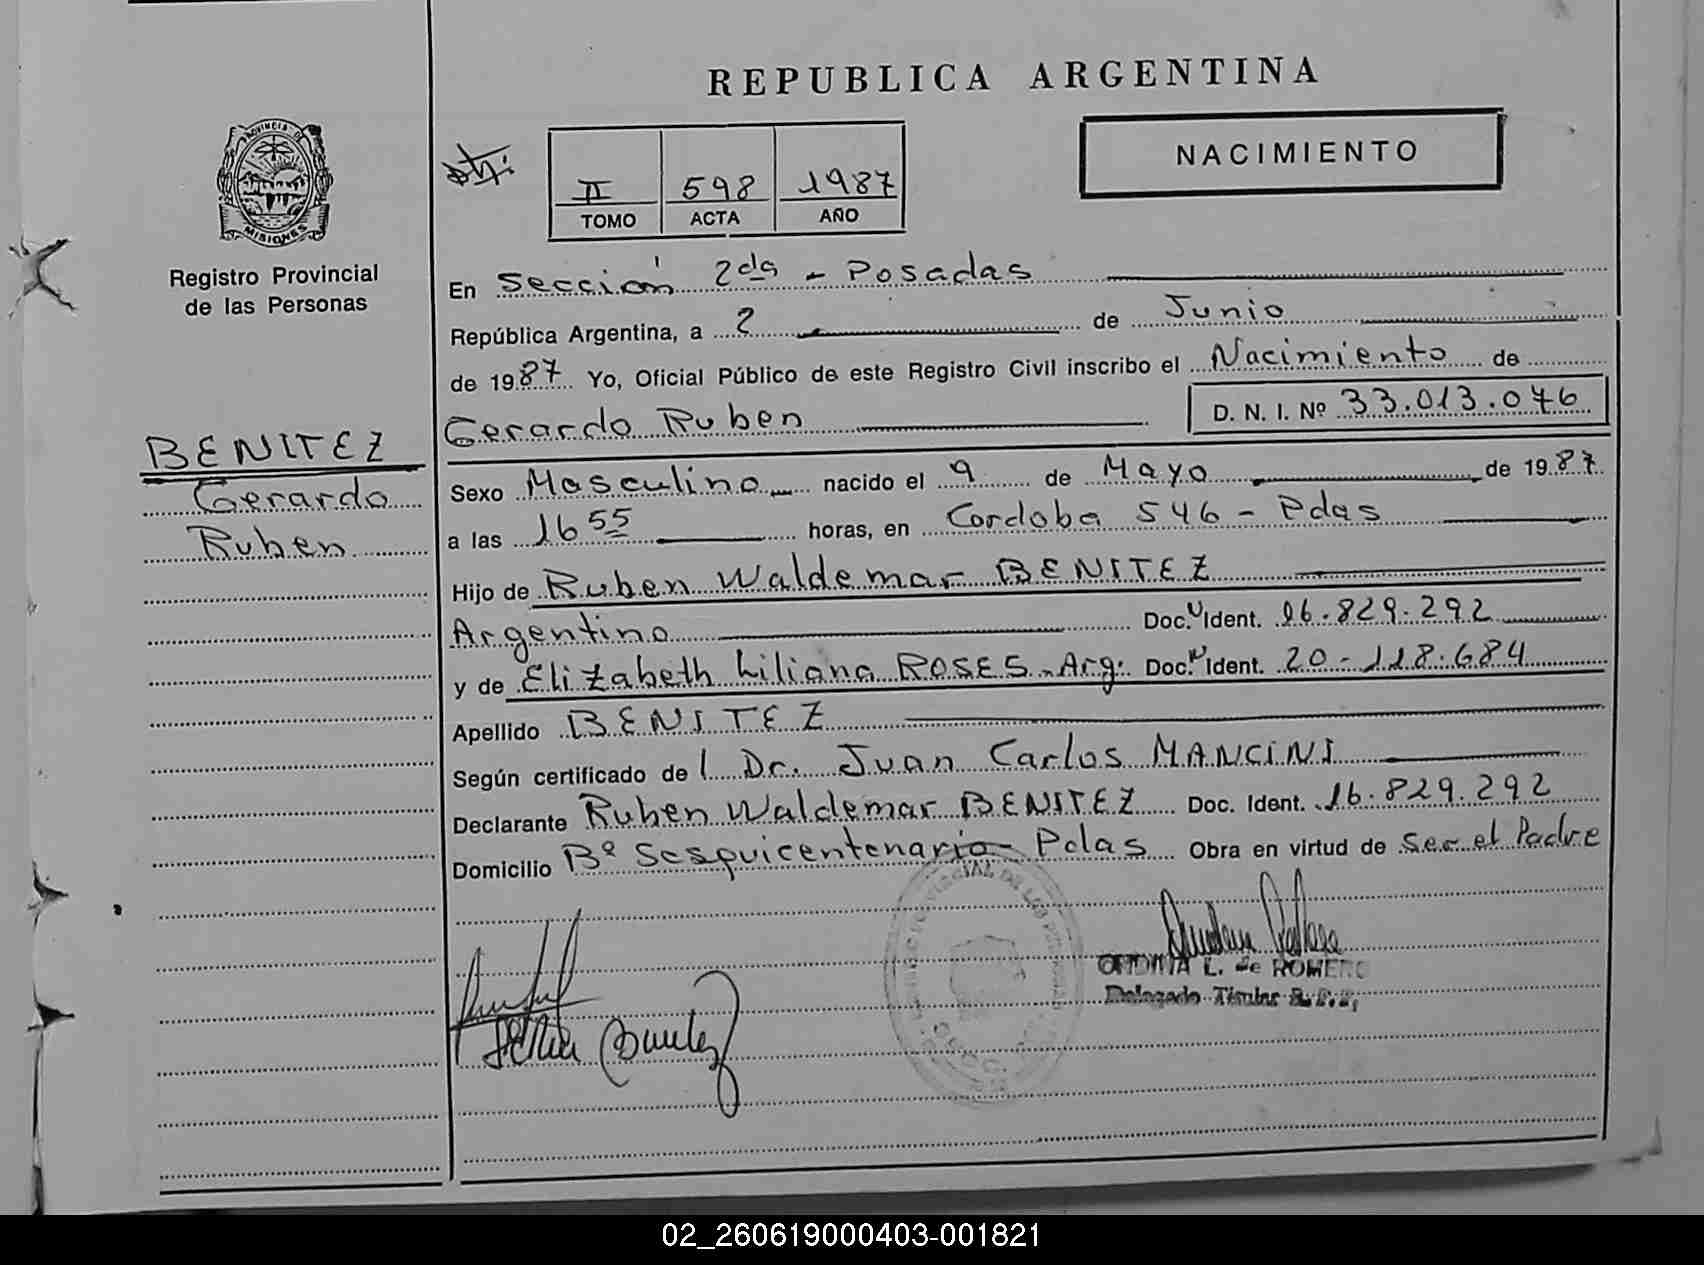 REPUBLICA ARGENTINA
NACIMIENTO
II 598 1987
TOMO ACTA AÑO
PROVINCIA DE
MISIONES
Registro Provincial
de las Personas
BENITEZ
Gerardo
Ruben
En Sección 2da - Posadas
República Argentina, a 2 de Junio
de 1987 Yo, Oficial Público de este Registro Civil inscribo el Nacimiento de
Gerardo Ruben D. N. I. Nº 33.013.076
Sexo Masculino nacido el 9 de Mayo de 1987
a las 16 55 horas, en Cordoba 546 - Pdas
Hijo de Ruben Waldemar BENITEZ
Argentino Doc. Ident. 16.829.292
y de Elizabeth Liliana ROSES - Arg: Doc. Ident. 20-118.684
Apellido BENITEZ
Según certificado de l Dr. Juan Carlos MANCINI
Declarante Ruben Waldemar BENITEZ Doc. Ident. 16.829.292
Domicilio Bº Sesquicentenario - Pdas Obra en virtud de ser el Padre
L. de ROMERO
Delegado Titular
02_260619000403-001821